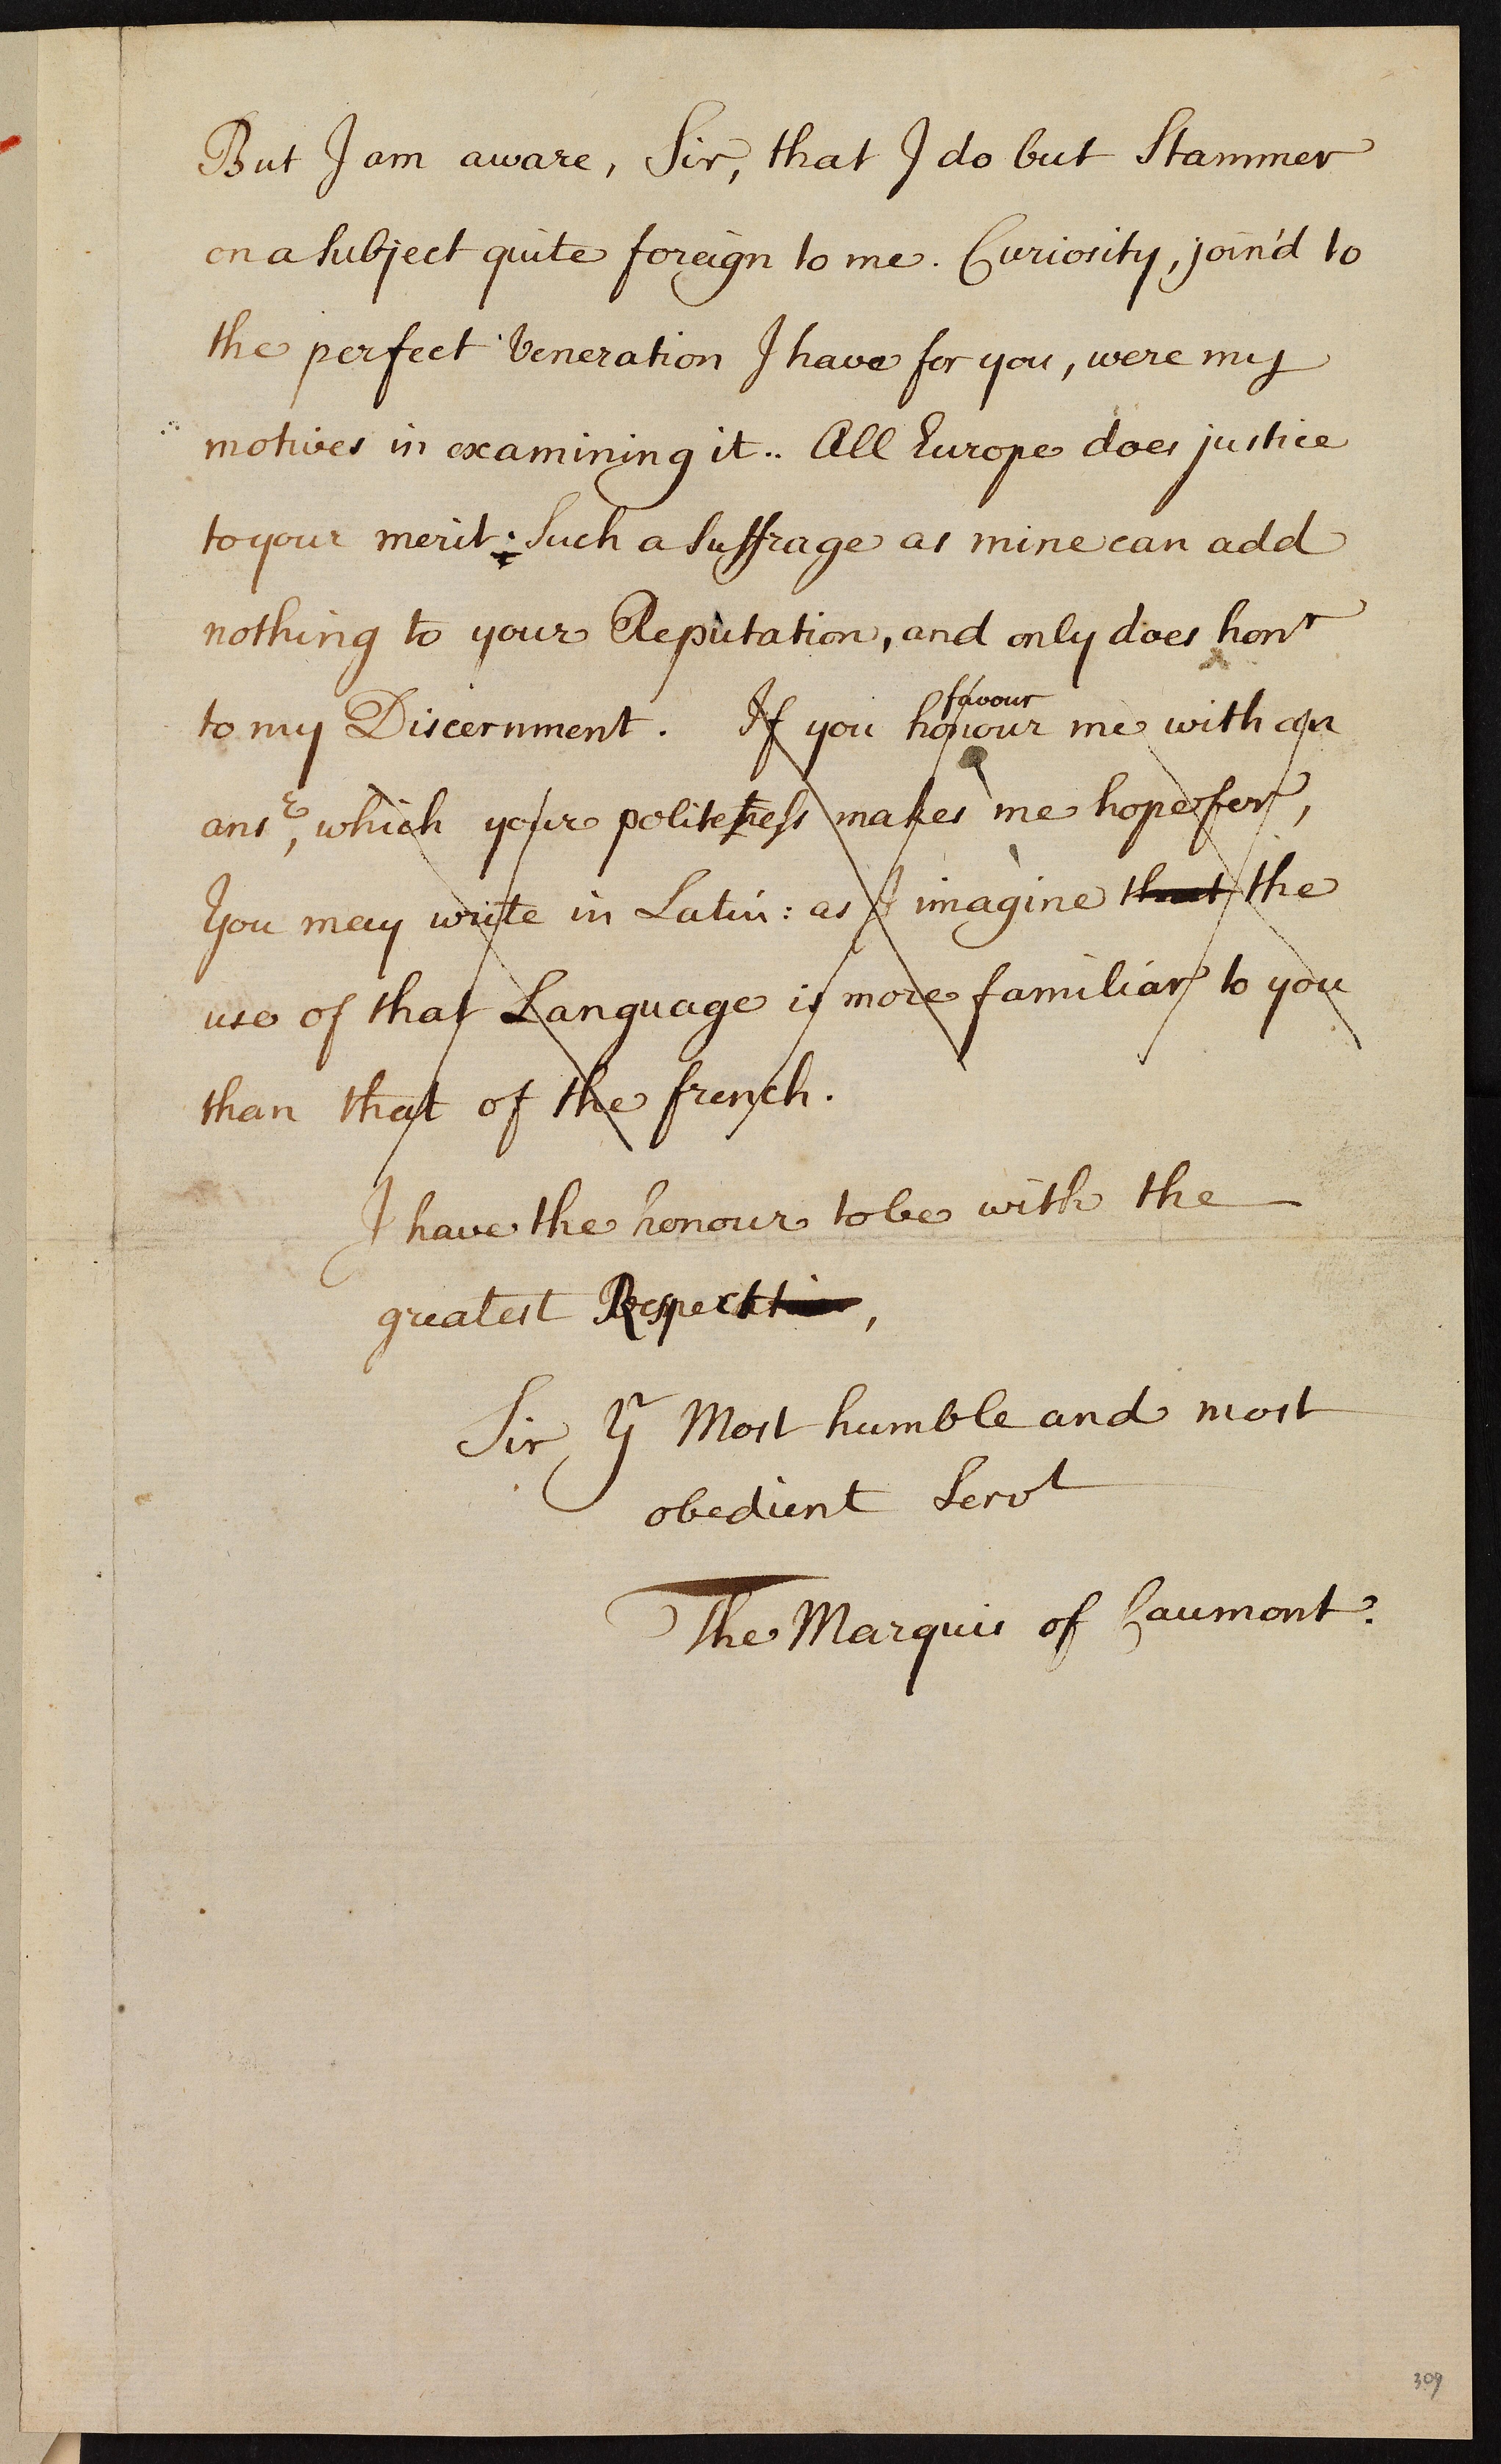 But I am aware, Sir, that I do but Stammer
on a Subject quite foreign to me. Curiosity, join'd to
the perfect Veneration I have for you, were my
motives in examining it.. All Europe does justice
to your merit: Such a Suffrage as mine can add
nothing to your Reputation, and only does honr
to my Discernment. If you honour me with an
favour
ansr, which your politeness makes me hope for,
You may write in Latin: as I imagine that the
use of that Language is more familiar to you
than that of the french.
I have the honour to be with the
greatest Respect,
Sir Yr Most humble and most
obedient Servt
The Marquis of Caumont.
309